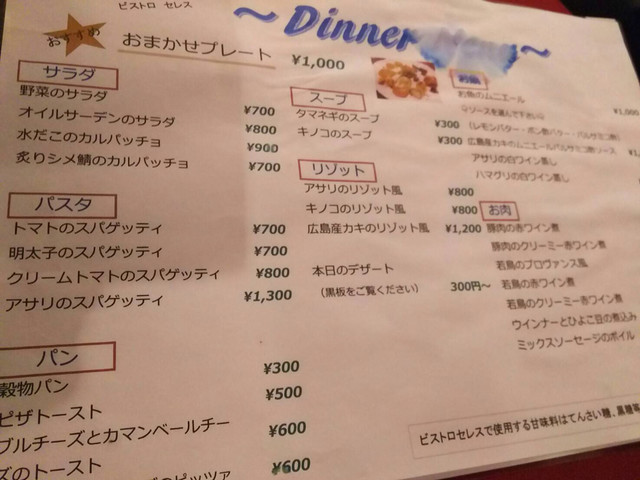 ビストロ セレス
～Dinner Menu～
おすすめ
おまかせプレート ¥1,000
サラダ
野菜のサラダ ¥700
オイルサーデンのサラダ ¥800
水だこのカルパッチョ ¥900
炙りシメ鯖のカルパッチョ ¥700
パスタ
トマトのスパゲッティ ¥700
明太子のスパゲッティ ¥700
クリームトマトのスパゲッティ ¥800
アサリのスパゲッティ ¥1,300
パン ¥300
穀物パン ¥500
ピザトースト
ブルチーズとカマンベールチー ¥600
ズのトースト ¥600
のピッツァ
スープ
タマネギのスープ ¥300
キノコのスープ ¥300
リゾット
アサリのリゾット風 ¥800
キノコのリゾット風 ¥800
広島産カキのリゾット風 ¥1,200
本日のデザート
（黒板をご覧ください） 300円～
お魚
お魚のムニエール
ソースを選んで下さい ¥1,000
（レモンバター・ポン酢バター・バルサミコ酢）
広島産カキのムニエールバルサミコ酢ソース
アサリの白ワイン蒸し
ハマグリの白ワイン蒸し
お肉
豚肉の赤ワイン煮
豚肉のクリーミー赤ワイン煮
若鳥のプロヴァンス風
若鳥の赤ワイン煮
若鳥のクリーミー赤ワイン煮
ウインナーとひよこ豆の煮込み
ミックスソーセージのボイル
ビストロセレスで使用する甘味料はてんさい糖、黒糖等